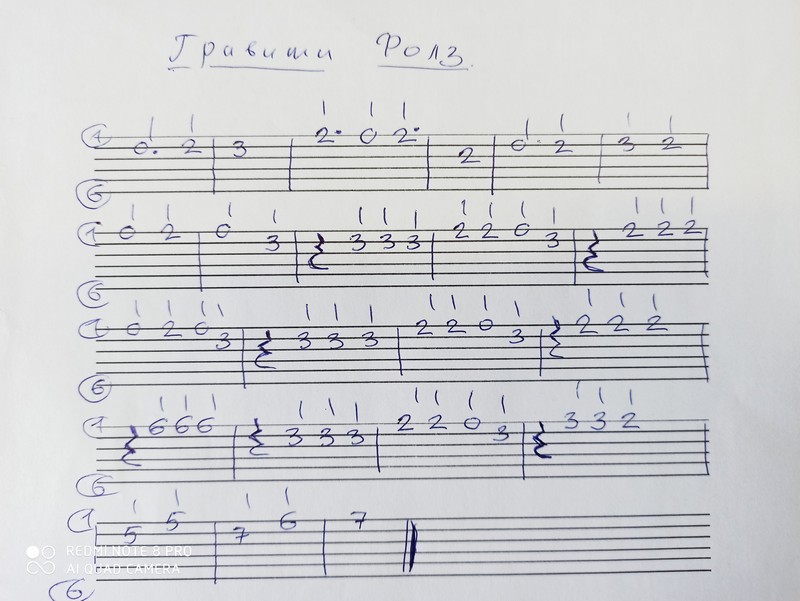 Гравити Фолз.
1 0. 2 3 2. 0 2. 2 0. 2 3 2
6
1 0 2 0 3 3 3 3 2 2 0 3 2 2 2
6
1 0 2 0 3 3 3 3 2 2 0 3 2 2 2
6
1 6 6 6 3 3 3 2 2 0 3 3 3 2
6
1 5 5 7 6 7
6
REDMI NOTE 8 PRO
AI QUAD CAMERA